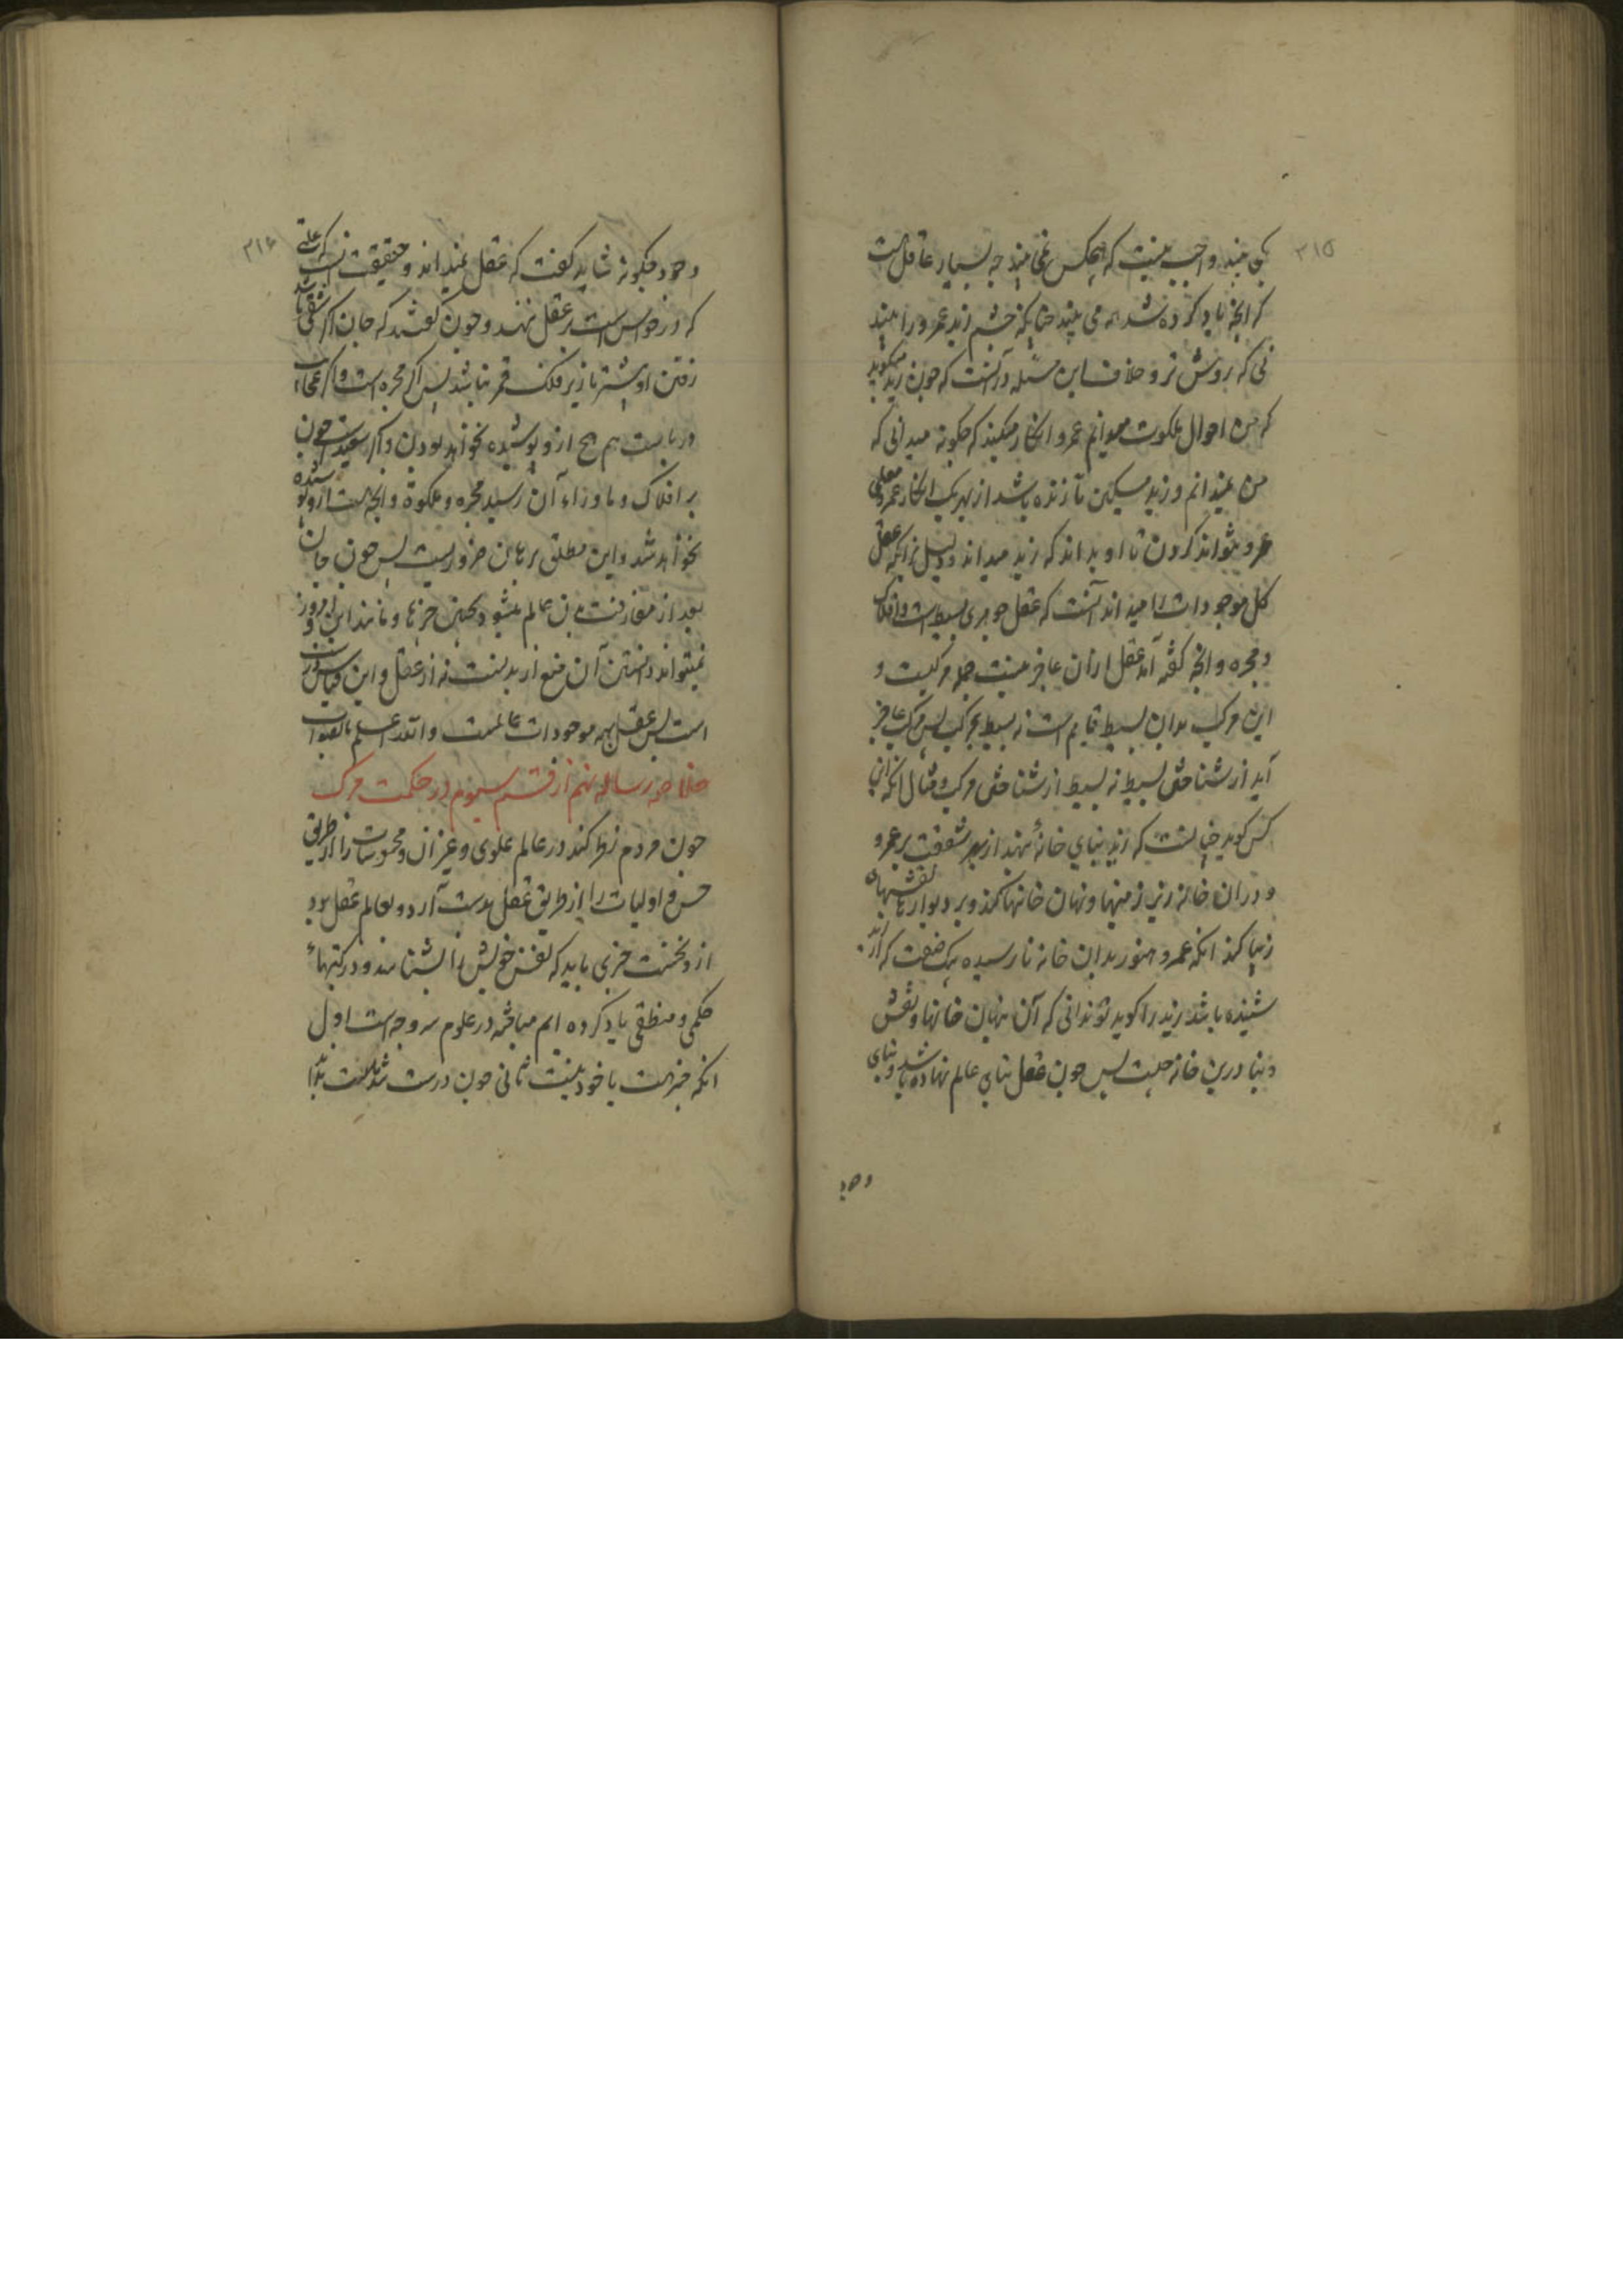 ۳۱۵
یکی بیند واجب نیست که هیچکس نمی بیند چه بسیار عاقل است
که آنچه یاد کرده شد همه می بیند چنانکه چشم زید عمرو را بیند
نی که روشن تر و خلاف این مسئله در آنست که چون زید میگوید
که من احوال ملکوت میدانم عمرو انکار میکند که چگونه میدانی که
من نمیدانم و زید مسکین تا زنده باشد از بهر یک انکار عمرو
عمرو نتواند کردن تا او بداند که زید میداند و دلیل برآنکه عقل
کل موجودات را میداند آنست که عقل جوهری بسیط است و افلاک
و مجره و آنچه گفته آمد عقل از آن عاجز نیست جمله مرکبست و
این مرکب بدان بسیط قایم است نه بسیط بمرکب پس مرکب عاجز
آید از شناختن بسیط نه بسیط از شناختن مرکب و مثال آنکه این
کس گوید چنانست که زید بنای خانهٔ نهد از بهر شفقت بر عمرو
و در آن خانه زیر زمینها و نهان خانها کند و بر دیوارها نقشهای
زیبا کند آنکه عمرو هنوز بدان خانه نارسیده یک صفت که از
شنیده باشد زید را گوید تو ندانی که آن نهان خانها و نقش
و بنا درین خانه چیست پس چون عقل بنای عالم نهاده باشد و بنای
وجود
۳۱۶
وجود چگونه شاید گفت که عقل نمیداند و حقیقت آنست که علتی
که در حواس است بر عقل نهند و چون گفته شد که جان اگر شقی باشد
رفتن او بیشتر تا زیر فلک قمر نباشد پس اگر مجره است و اگر عجایب
دریاست هم هیچ ازو پوشیده نخواهد بودن و اگر سعید است چون
بر افلاک و ماوراء آن رسید مجره و ملکوة و آنچه هست ازو پوشیده
نخواهد شد و این مطلق برهان ضروریست پس چون جان
بعد از مفارقت بدن عالم بشود بچنین چیزها و مانند این امروز
نمیتواند دانستن آن منع از بدنست نه از عقل و این قیاس روشن
است پس عقل بهمه موجودات عالمست والله اعلم بالصواب
خلاصه رساله نهم از قسم سیوم در حکمت مرگ
چون مردم نظر کند در عالم علوی و غیر آن و محسوسات را از طریق
حس و اولیات را از طریق عقل بدست آرد و بعالم عقل بود
از و نخست چیزی باید که نفس خویش را بشناسد و در کتبهاء
حکمی و منطقی یاد کرده ایم مباحثه در علوم سه وجه است اول
آنکه چیز هست یا خود نیست ثانی چون درست شد که هست بدا